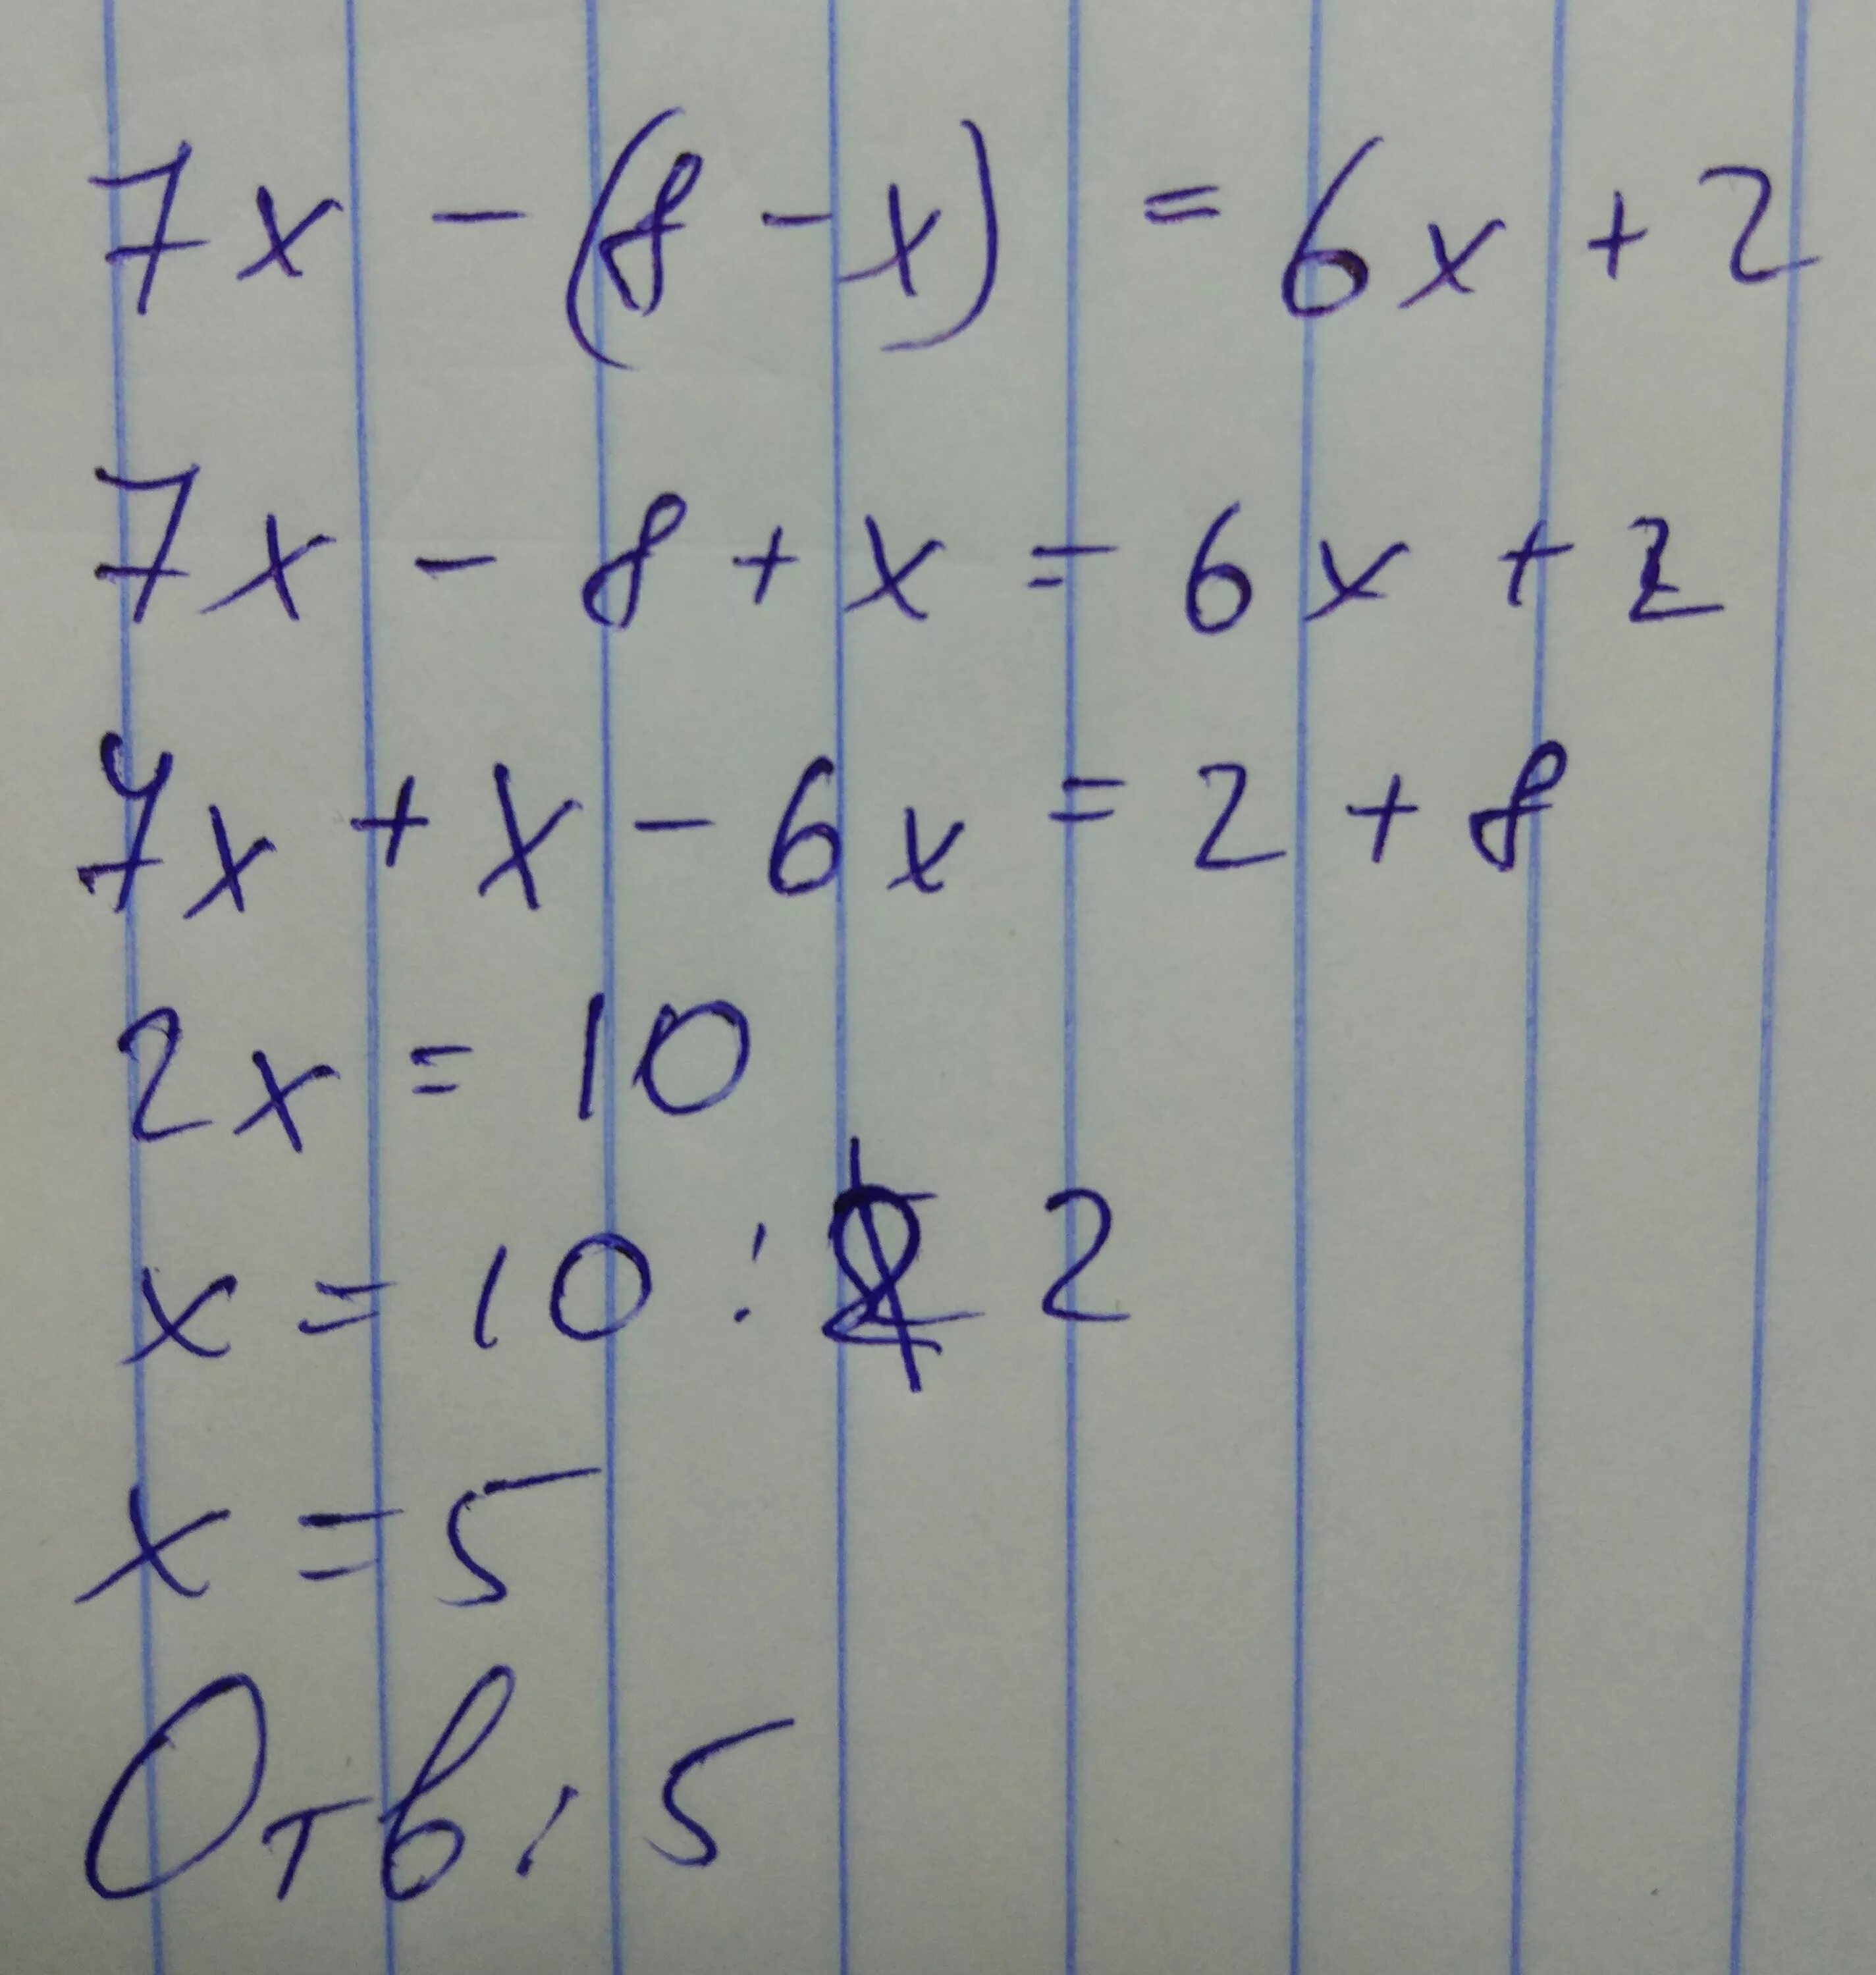 7x - (8 - x) = 6x + 2
7x - 8 + x = 6x + 2
7x + x - 6x = 2 + 8
2x = 10
x = 10 : 2
x = 5
Отв: 5